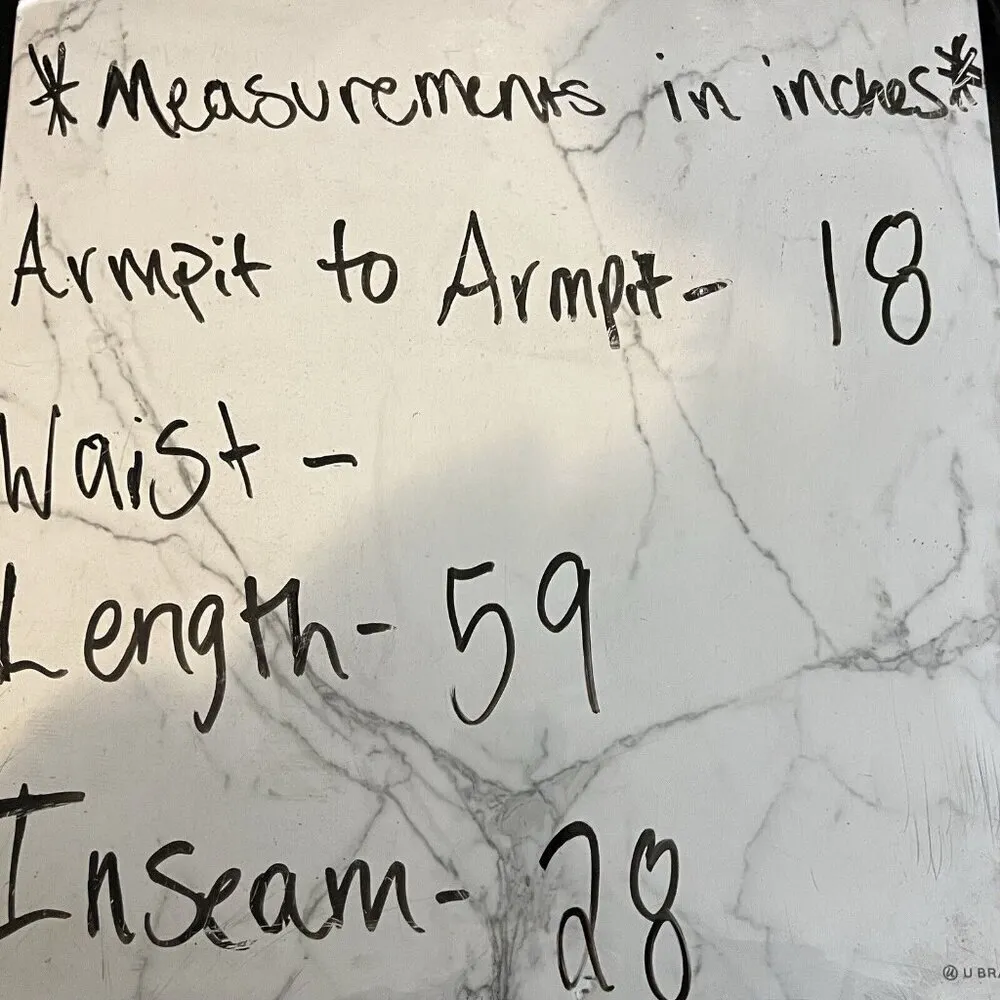 *Measurements in inches*
Armpit to Armpit- 18
Waist -
Length- 59
Inseam- 28
U BRA